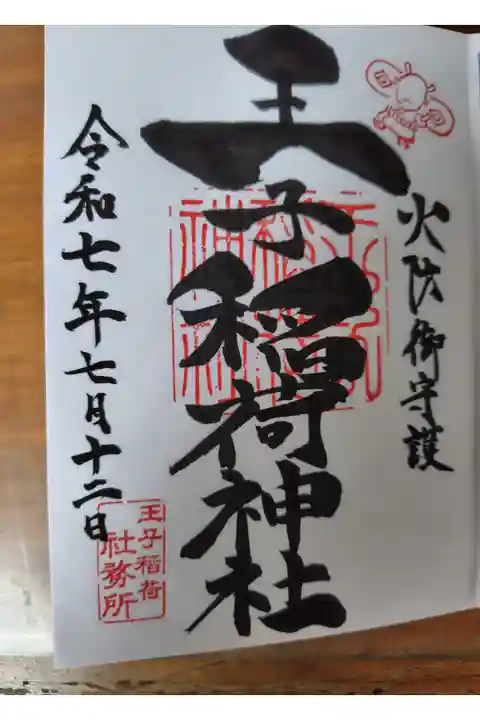 火防御守護
王子稲荷神社
令和七年七月十二日
王子稲荷
社務所